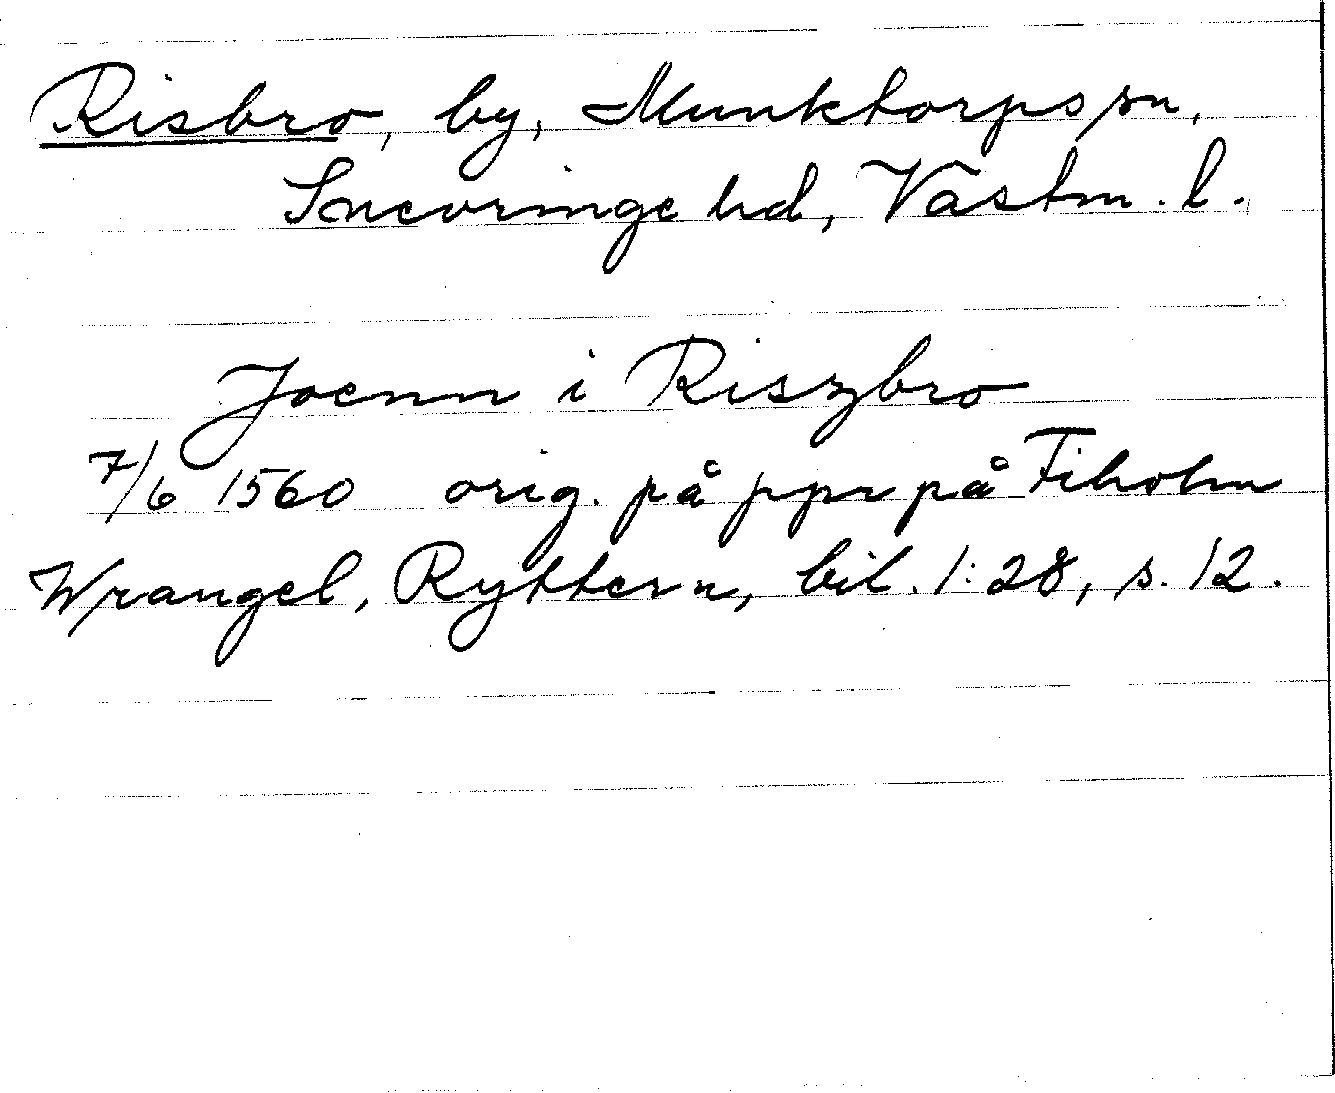 Risbro, by, Munktorps sn,
Snevringe hd, Västm. l.
Joenn i Riszbro
7/6 1560 orig. på ppr på Fiholm
Wrangel, Ryttern, bil. 1:28, s. 12.